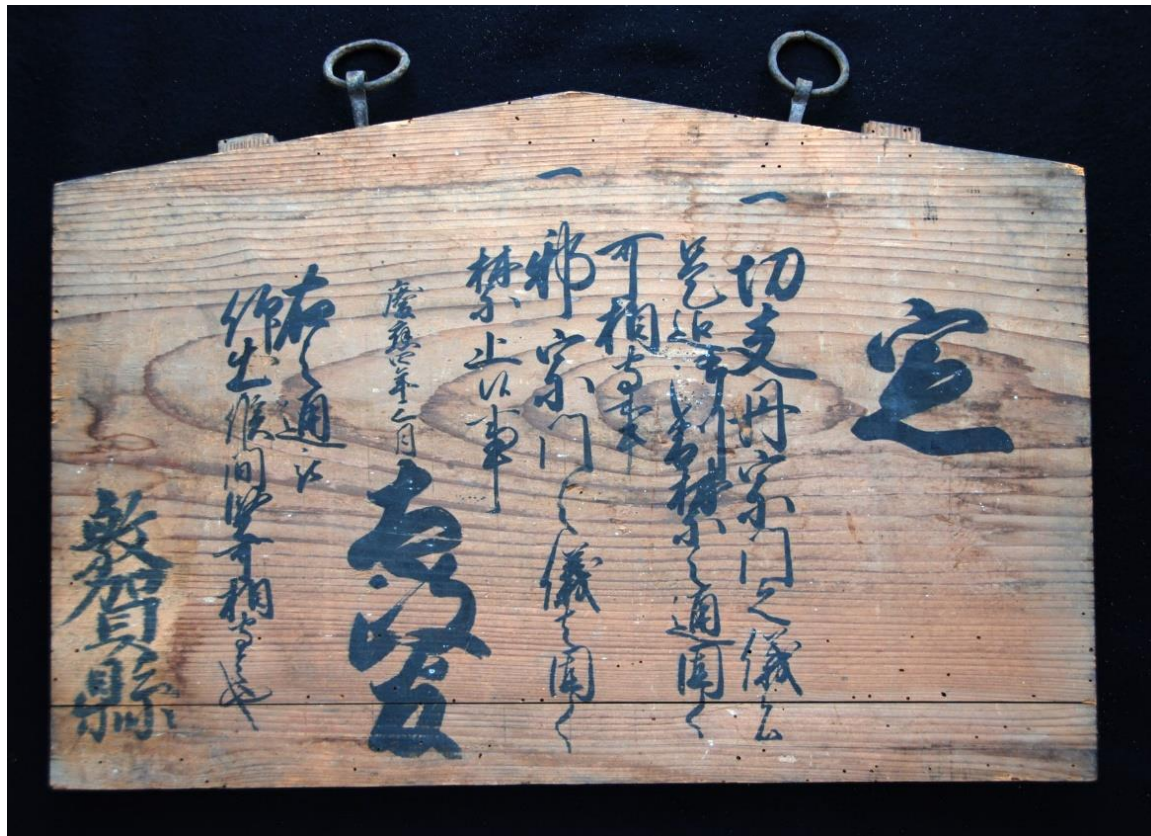 定
一 切支丹宗門之儀ハ
是迄御制禁之通固く
可相守事
一 邪宗門之儀は固く
禁止候事
慶應四年三月
太政官
右之通被
仰出候間堅可相守者也
敦賀縣